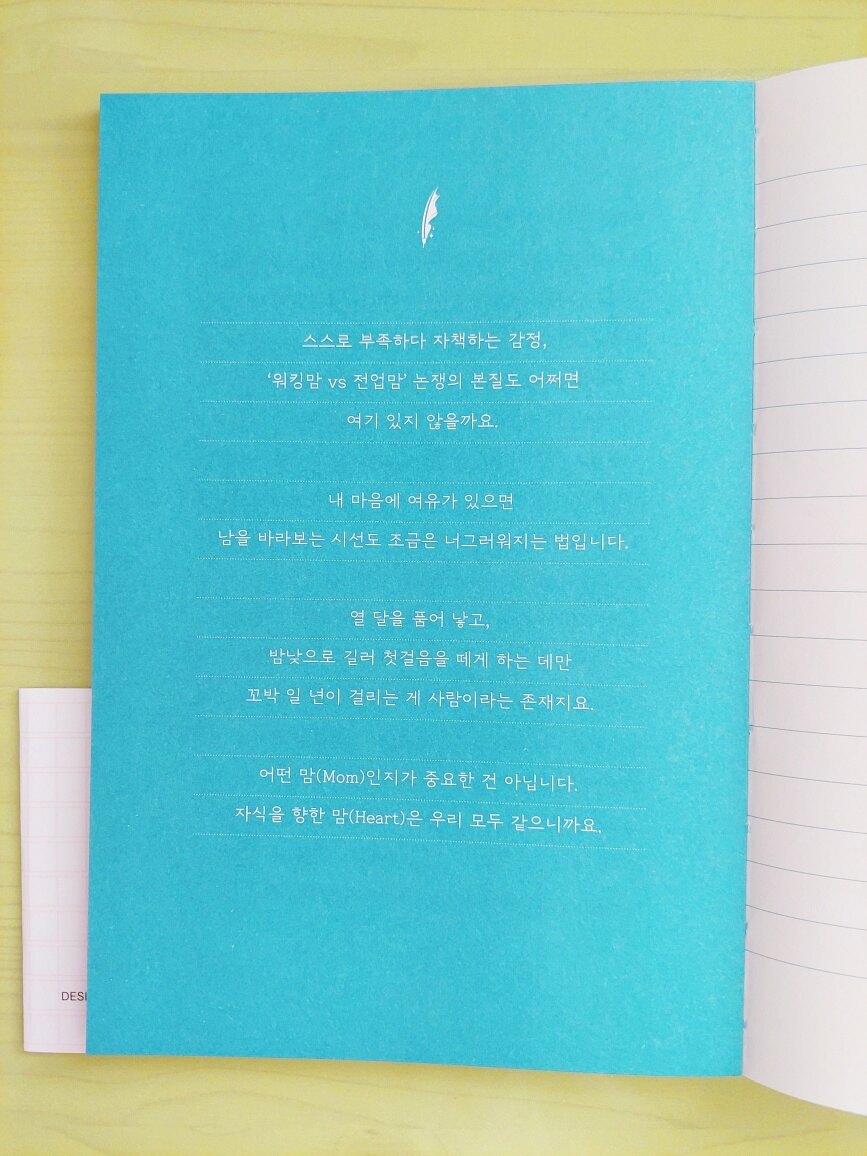 스스로 부족하다 자책하는 감정,
‘워킹맘 vs 전업맘’ 논쟁의 본질도 어쩌면
여기 있지 않을까요.
내 마음에 여유가 있으면
남을 바라보는 시선도 조금은 너그러워지는 법입니다.
열 달을 품어 낳고,
밤낮으로 길러 첫걸음을 떼게 하는 데만
꼬박 일 년이 걸리는 게 사람이라는 존재지요.
어떤 맘(Mom)인지가 중요한 건 아닙니다.
자식을 향한 맘(Heart)은 우리 모두 같으니까요.
DESI